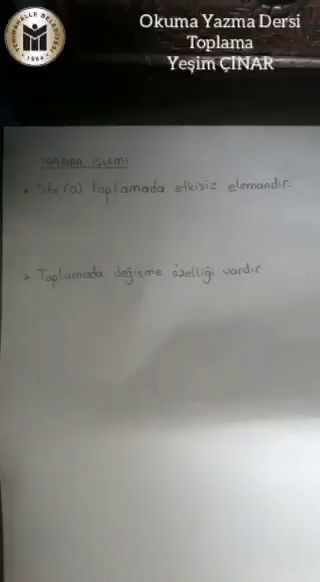 YENİMAHALLE BELEDİYESİ
1984
Okuma Yazma Dersi
Toplama
Yeşim ÇINAR
TOPLAMA İŞLEMİ
* Sıfır (0) toplamada etkisiz elemandır.
* Toplamada değişme özelliği vardır